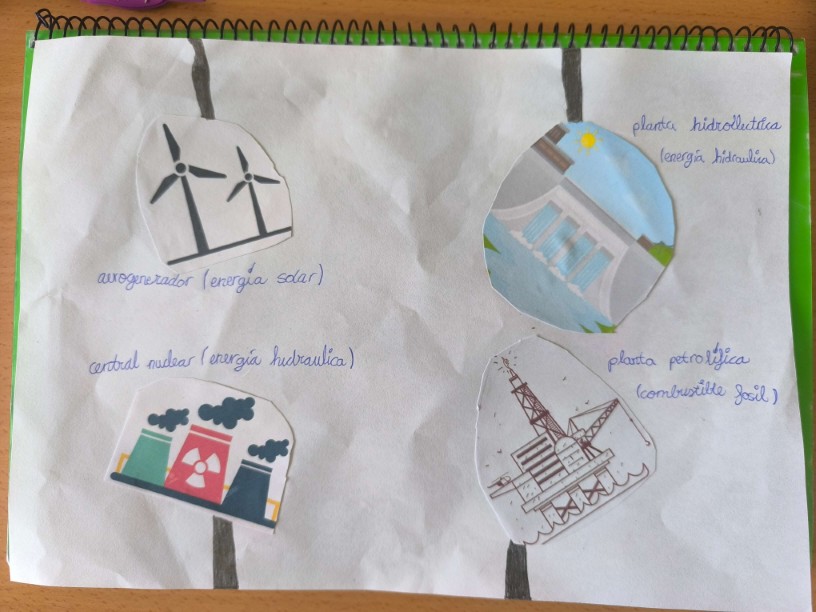 aerogenerador (energía solar)
planta hidroélectrica
(energía hidraulica)
central nuclear (energía hidraulica)
planta petrolífica
(combustible fosil)